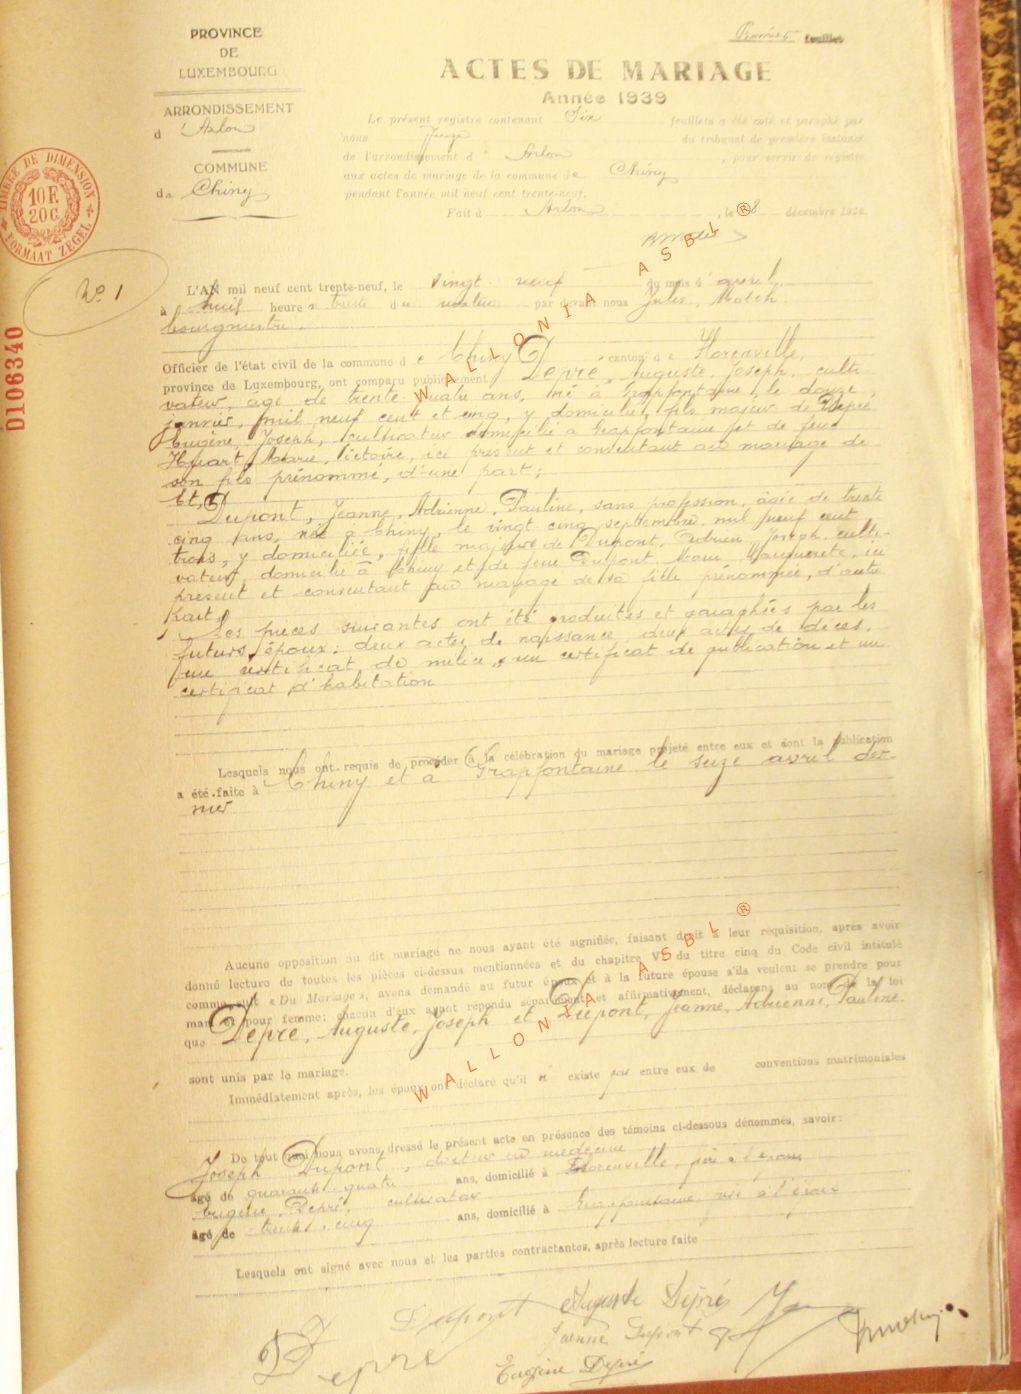 PROVINCE
DE
LUXEMBOURG
ARRONDISSEMENT
d'Arlon
COMMUNE
de Chiny
Premier feuillet
ACTES DE MARIAGE
Année 1939
Le présent registre contenant Six feuillets a été coté et paraphé par
nous Juge du tribunal de première instance
de l'arrondissement d' Arlon, pour servir de registre
aux actes de mariage de la commune de Chiny
pendant l'année mil neuf cent trente-neuf.
Fait à Arlon, le 8 décembre 1938.
TIMBRE DE DIMENSION
10 F.
20 C.
FORMAAT ZEGEL
N° 1
D106340
L'AN mil neuf cent trente-neuf, le vingt neuf du mois d'avril
à huit heures trente du matin par devant nous Jules,
bourgmestre.
Officier de l'état civil de la commune de Chiny canton de Florenville,
province de Luxembourg, ont comparu publiquement Depré, Auguste, Joseph, culti-
vateur, âgé de trente quatre ans, né à Grapfontaine, le douze
janvier, mil neuf cent et cinq, y domicilié, fils majeur de Depré
Eugène, Joseph, cultivateur domicilié à Grapfontaine et de feue
Huart, Marie, Victoire, ici présent et consentant au mariage de
son fils prénommé, d'une part;
Et,
Dupont, Jeanne, Adrienne, Pauline, sans profession, âgée de trente
cinq ans, née à Chiny, le vingt cinq septembre mil neuf cent
trois, y domiciliée, fille majeure de Dupont, Adrien, Joseph, culti-
vateur, domicilié à Chiny et de feue Dupont Marie Marguerite, ici
présent et consentant au mariage de sa fille prénommée, d'autre
part.
Les pièces suivantes ont été produites et paraphées par les
futurs époux: deux actes de naissance, deux actes de décès,
un certificat de milice, un certificat de publication et un
certificat d'habitation
Lesquels nous ont requis de procéder à la célébration du mariage projeté entre eux et dont la publication
a été faite à Chiny et à Grapfontaine le seize avril der-
nier
Aucune opposition au dit mariage ne nous ayant été signifiée, faisant droit à leur réquisition, après avoir
donné lecture de toutes les pièces ci-dessus mentionnées et du chapitre VI du titre cinq du Code civil intitulé
comme suit « Du Mariage », avons demandé au futur époux et à la future épouse s'ils veulent se prendre pour
mari et pour femme; chacun d'eux ayant répondu séparément et affirmativement, déclarons au nom de la loi
que Depré, Auguste, Joseph et Dupont, Jeanne, Adrienne, Pauline
sont unis par le mariage.
Immédiatement après, les époux ont déclaré qu'il n'existe pas entre eux de conventions matrimoniales
De tout quoi nous avons dressé le présent acte en présence des témoins ci-dessous dénommés, savoir:
Joseph Dupont, docteur en médecine
âgé de quarante quatre ans, domicilié à Florenville,
Eugène Depré, cultivateur
âgé de trente cinq ans, domicilié à Grapfontaine,
Lesquels ont signé avec nous et les parties contractantes, après lecture faite
Dupont Auguste Depré
Jeanne Dupont
Depré
Eugène Depré
WALLONIA ASBL ®
WALLONIA ASBL ®